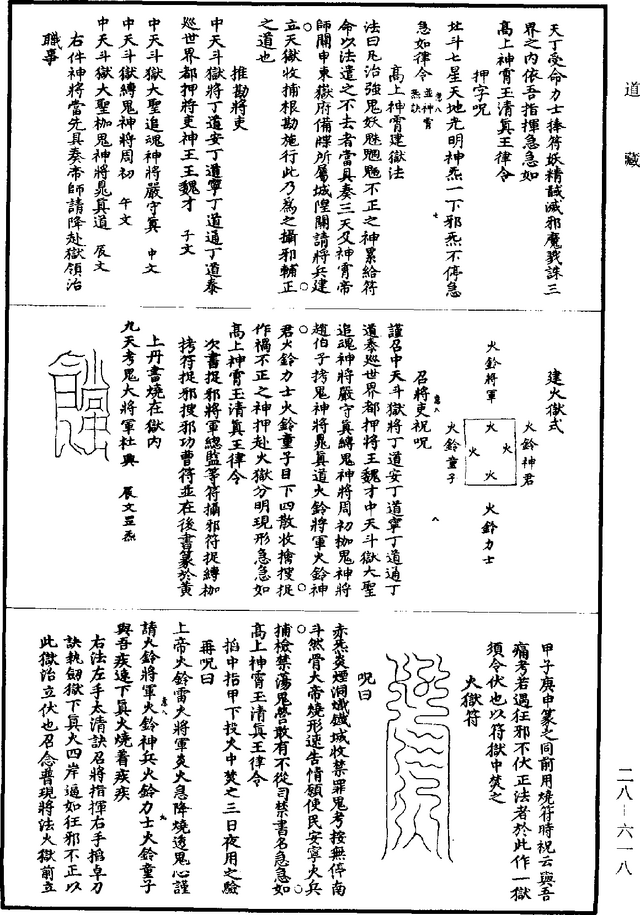 道藏
天丁受命力士捧符妖精誠滅邪魔戮誅三
界之內依吾指揮急急如
高上神霄玉清眞王律令
押字呪
北斗七星天地光明神炁一下邪炁不停急
急如律令
高上神霄建獄法
法曰凡治強鬼妖魅魍魎不正之神累給符
命以法遣之不去者當具奏三天及神霄帝
師關申東嶽府備牒所屬城隍關請將兵建
立天獄收捕根勘施行此乃爲之攝邪輔正
之道也
推勘將吏
中天斗獄將丁道安丁道寧丁道通丁道泰
巡世界都押將吏神王王魏才 子文
中天斗獄大聖追魂神將嚴守眞 申文
中天斗獄縛鬼神將周初 午文
中天斗獄大聖枷鬼神將晁眞道 辰文
右件神將當先具奏帝師請降赴獄領治
職事
建火獄式
火鈴神君
火鈴力士
火 火 火 火
火鈴將軍
火鈴童子
召將吏祝呪
謹召中天斗獄將丁道安丁道寧丁道通丁
道泰巡世界都押將王魏才中天斗獄大聖
追魂神將嚴守眞縛鬼神將周初枷鬼神將
趙伯子拷鬼神將晁眞道火鈴將軍火鈴神
君火鈴力士火鈴童子目下四散收擒搜捉
作禍不正之神押赴火獄分明現形急急如
高上神霄玉清眞王律令
次書捉邪將軍總監等符攝邪符捉縛枷
拷符捉邪搜邪功曹符並在後書篆於黃
上丹書燒在獄內
九天考鬼大將軍杜興 辰文罡炁
甲子庚申篆之同前用燒符時祝云與吾
痛考若遇狂邪不伏正法者於此作一獄
須令伏也以符獄中焚之
火獄符
呪曰
赤炁炎煙洞熾鐵城收禁罪鬼考按無停南
斗然骨大帝燒形速告情願使民安寧火兵
捕檢禁蕩鬼營敢有不從司禁書名急急如
高上神霄玉清眞王律令
掐中指甲下投火中焚之三日夜用之驗
再呪曰
上帝火鈴雷火將軍炎火急降燒透鬼心謹
請火鈴將軍火鈴神兵火鈴力士火鈴童子
與吾疾速下眞火燒着疾疾
右法左手太清訣召將指揮右手掐卓刀
訣執劍獄下眞火四岸逼如狂邪不正以
此獄治立伏也召念普現將法火獄前立
二八－六一八